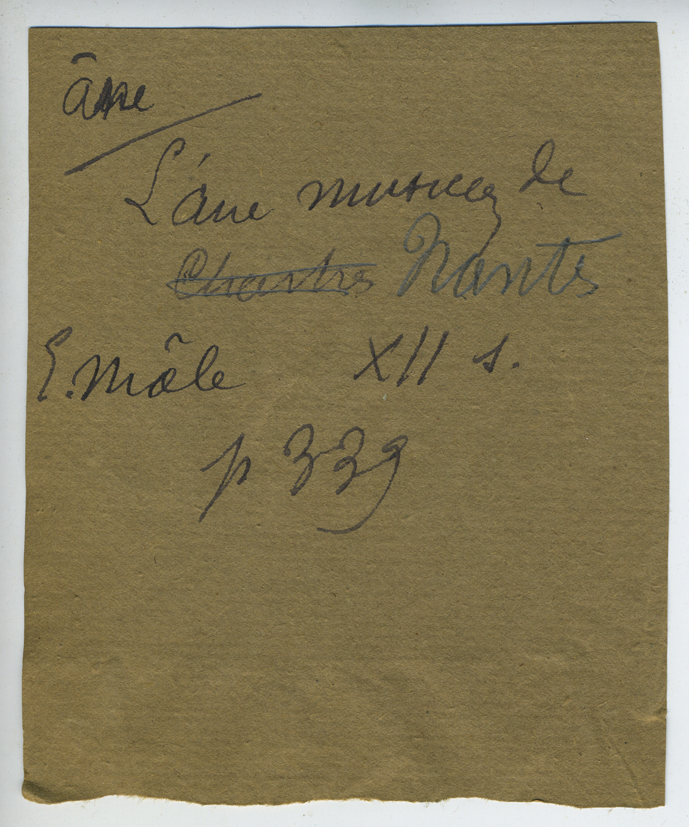 âne
L'âne musicien de
Chartres Nantes
E. Mâle XII s.
p 339